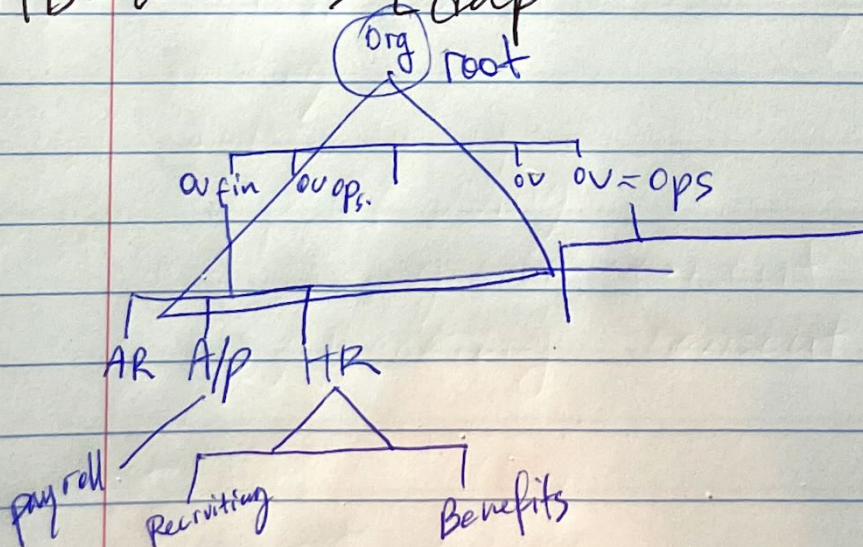 Org
root
ou fin ou ops. ou ou = ops
AR A/P HR
payroll
Recruiting Benefits